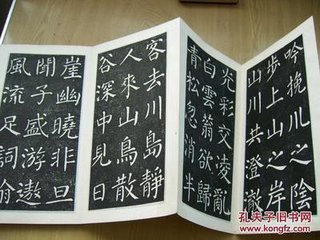 吟挽川之陰
步上山之岸
山川共澄澈
光彩交凌亂
白雲蓊欲歸
青松忽消半
客去川島靜
人來山鳥散
谷深中見日
崖幽曉非旦
聞子盛游遨
風流足詞翰
孔夫子旧书网